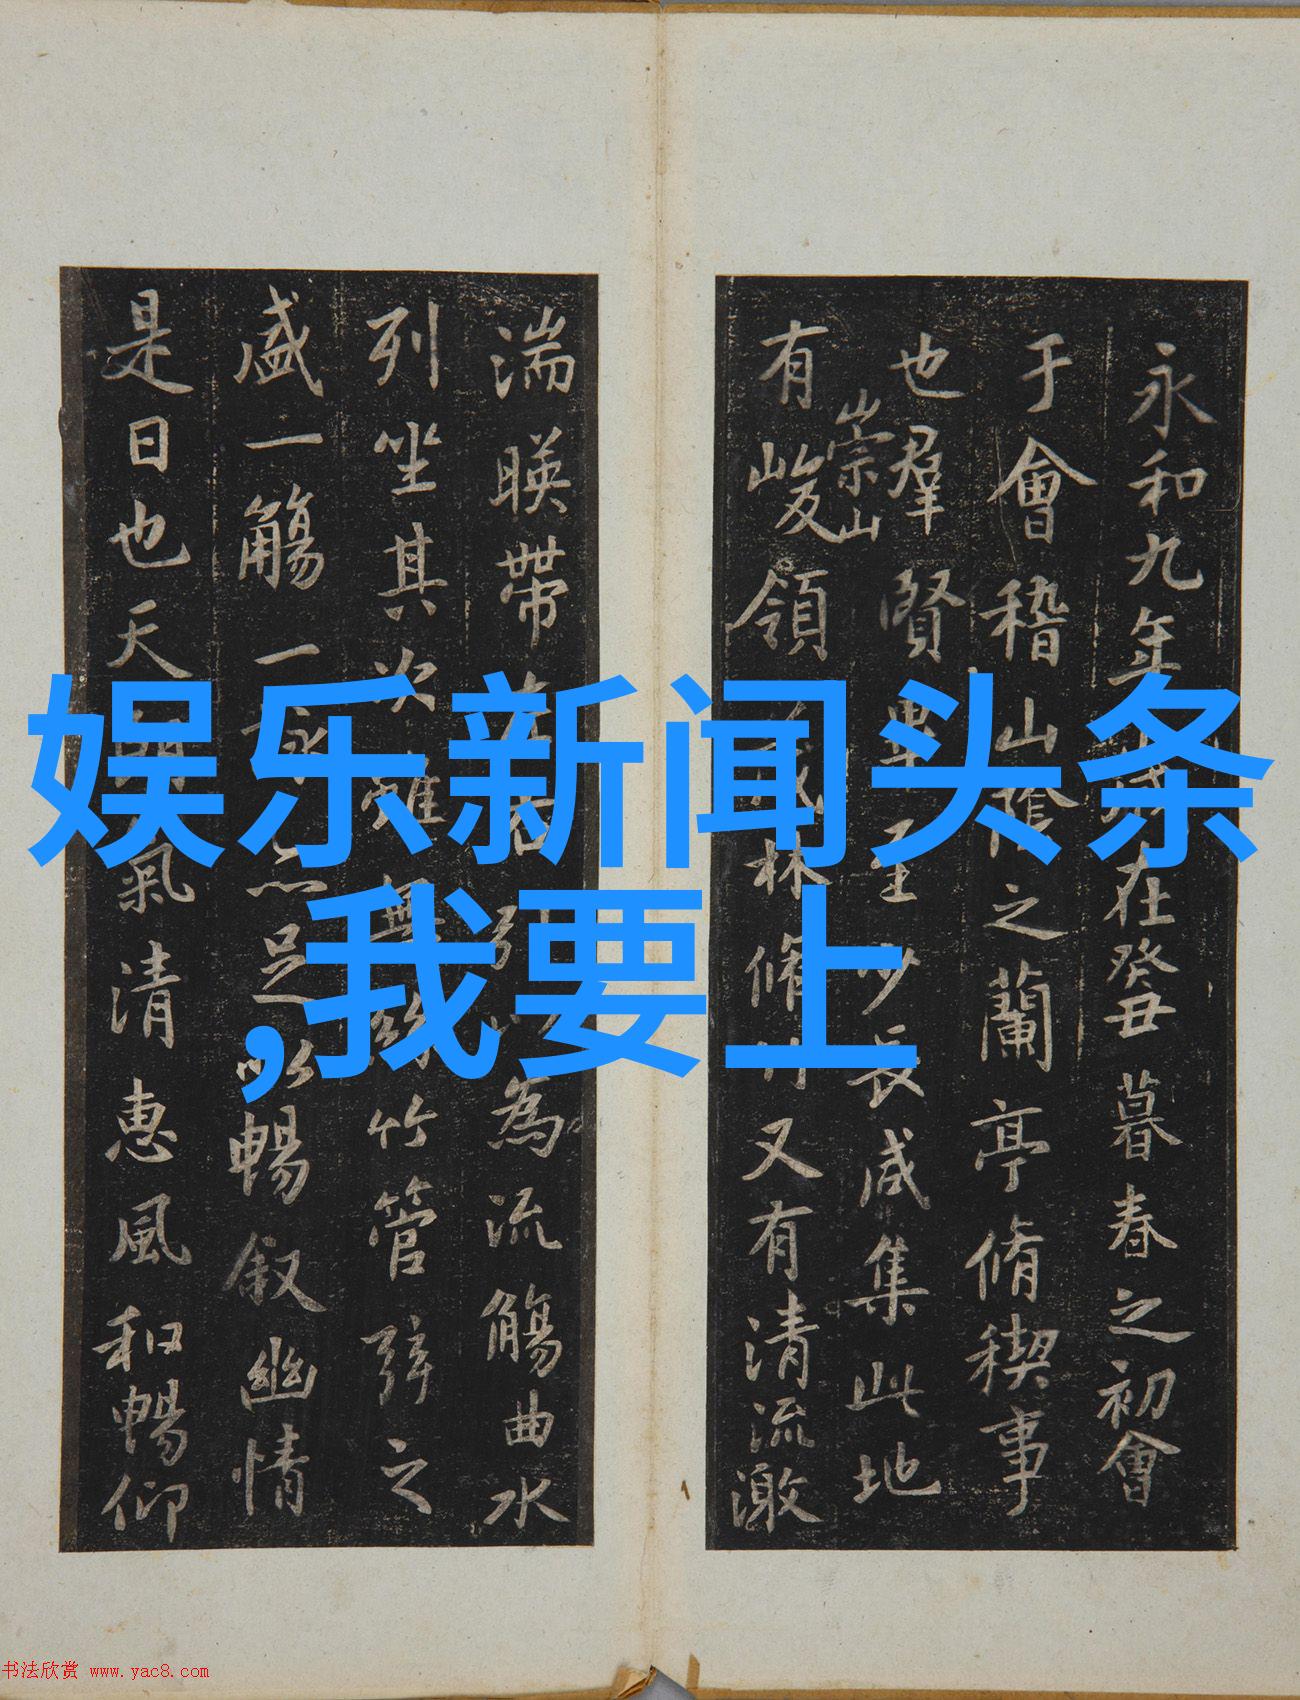 娱乐新闻头条
,我要上
永和九年在癸丑暮春之初會
于會稽山陰之蘭亭脩稧事
也羣賢畢至少長咸集此地
崇山
有峻領茂林脩竹又有清流激
湍暎帶左右引以為流觴曲水
列坐其次雖無絲竹管弦之
盛一觴一詠亦足以暢叙幽情
是日也天朗氣清惠風和暢仰
书法欣赏 www.yac8.com